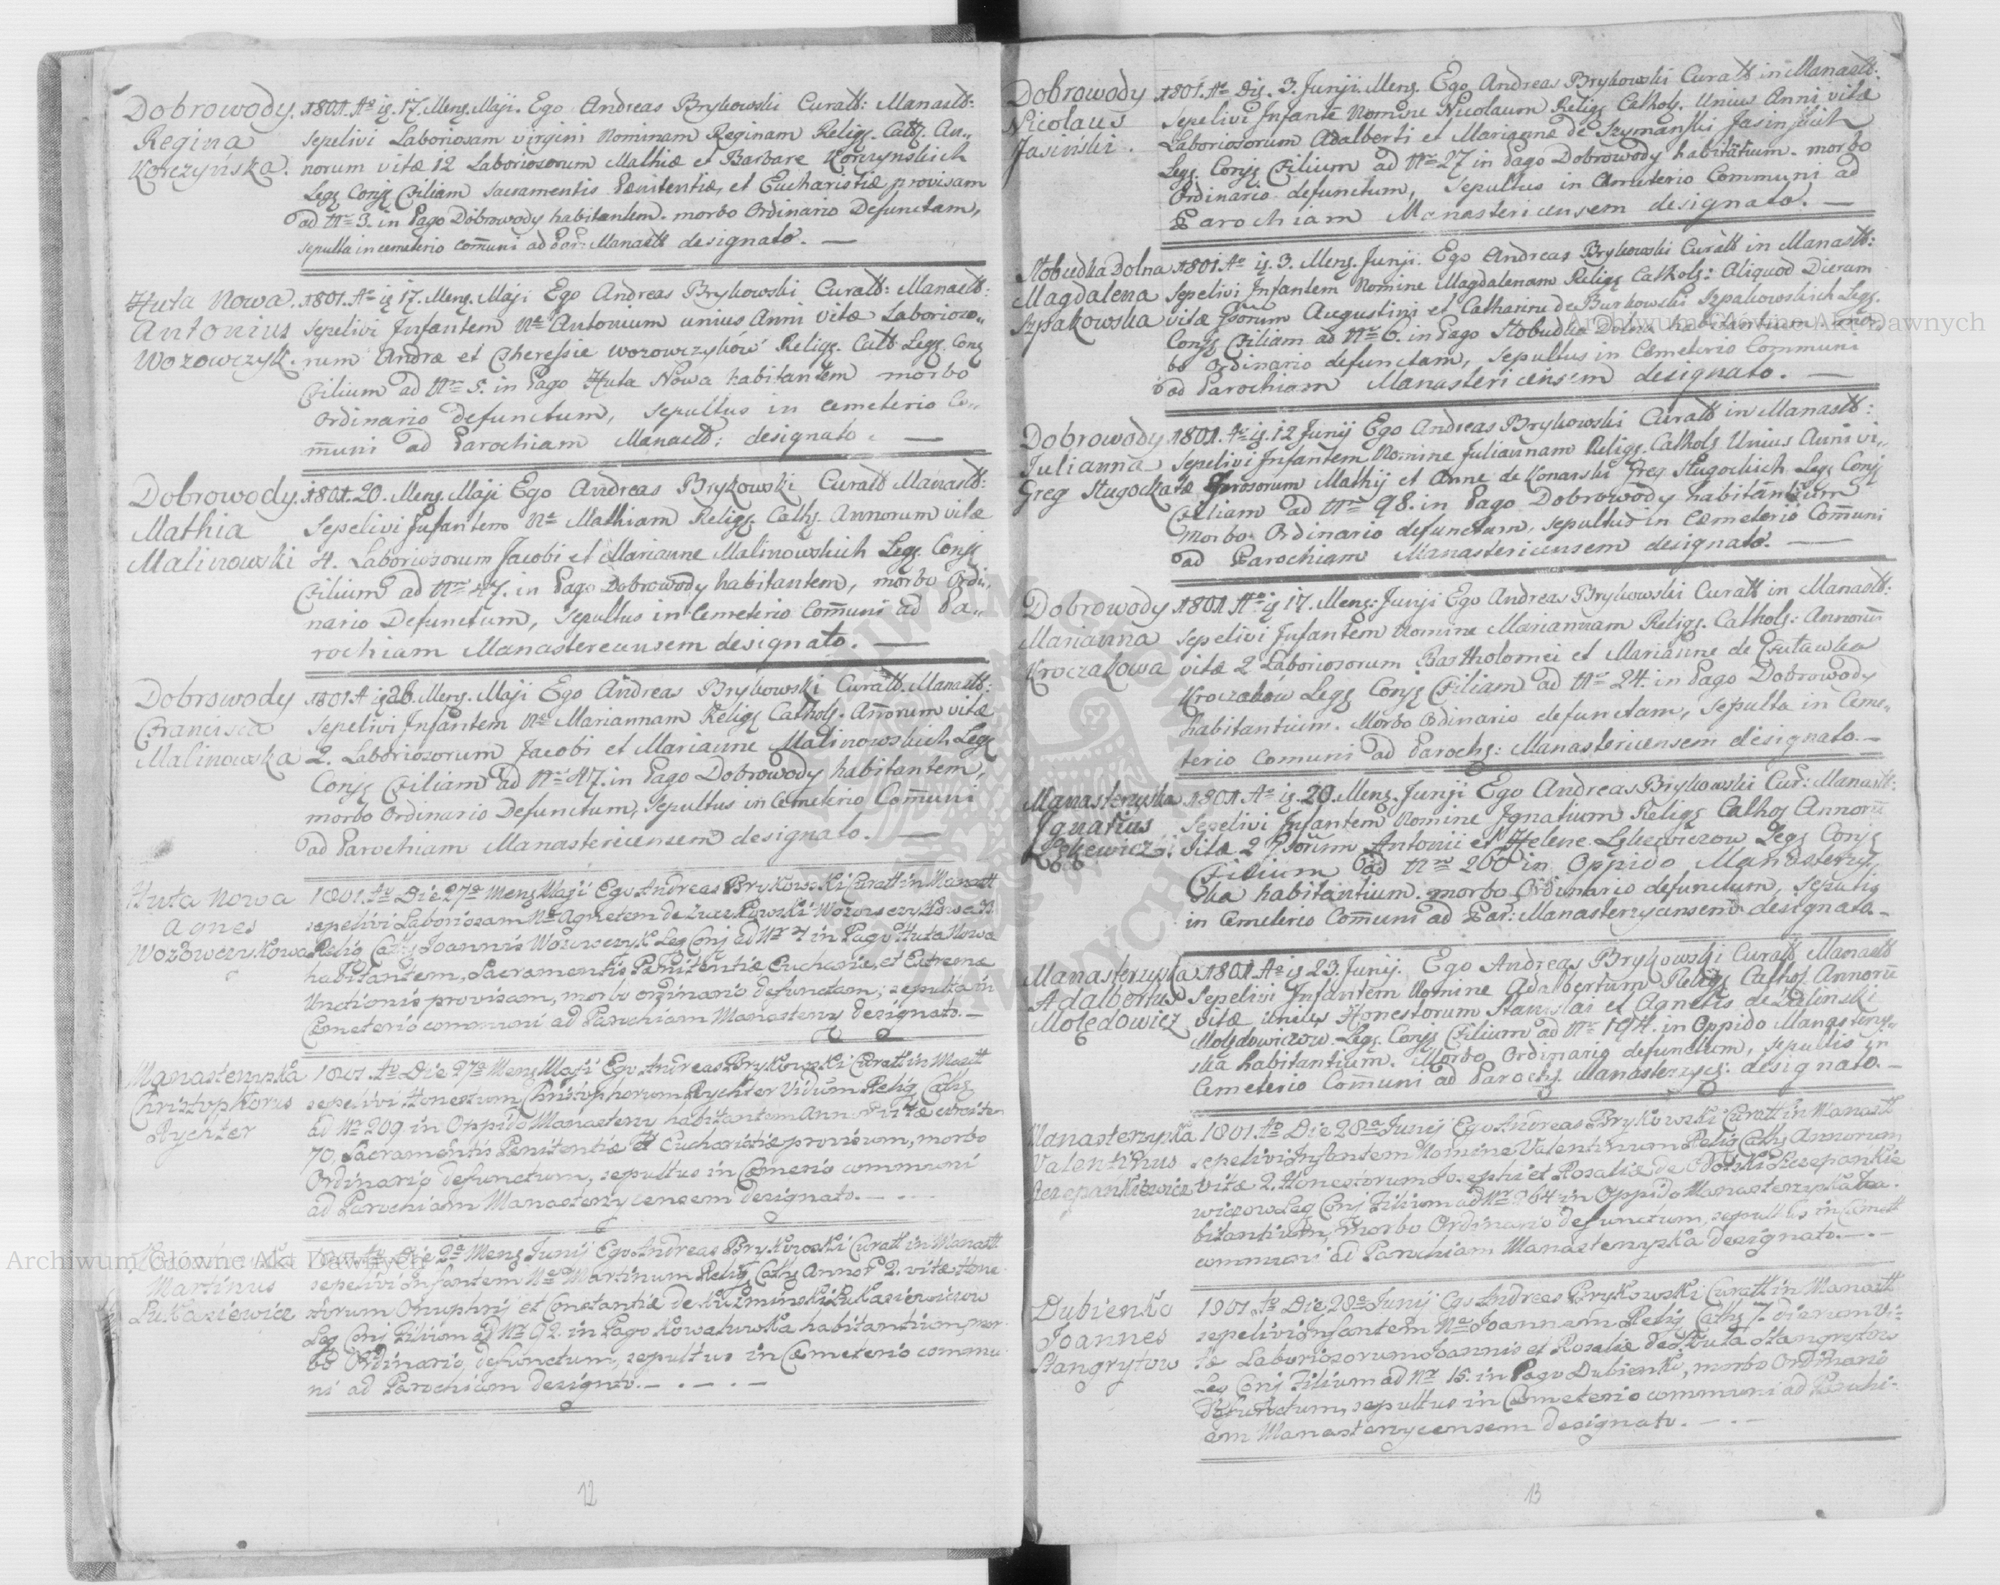 Dobrowody.
Regina
Korczyńska.
1801. Ao ig. 17. Meng. Maji. Ego Andreas Brykowski Curatt: Manastt:
sepelivi Laboriosam virgin Nominam Reginam Relig. Cath. An„
norum vitæ 12 Laboriosorum Mathiæ et Barbare Korczynskich
Leg. Conjg Filiam Sacramentis Pænitentiæ, et Eucharistiæ provisam
ad Nro 3. in Pago Dobrowody habitantem. morbo Ordinario Defunctam,
sepulta in cemeterio comuni ad Par: Manastt designato. —
Huta Nowa.
Antonius
Wozowczyk.
1801. Ao ig 17. Meng. Maji Ego Andreas Brykowski Curatt: Manastt:
sepelivi Infantem Ne Antonium unius Anni vitæ Laborioso„
rum Andræ et Theresie Wozowczyków Relig. Cath Legg. Conj
Filium ad Nro 5. in Pago Huta Nowa habitantem morbo
Ordinario defunctum, sepultus in cemeterio Co„
muni ad Parochiam Manastt: designato. —
Dobrowody.
Mathia
Malinowski
1801. 20. Meng. Maji Ego Andreas Brykowski Curatt Manastt:
Sepelivi Infantem Ne Mathiam Relig. Cath. Annorum vitæ
4. Laboriosorum Jacobi et Marianne Malinowskich Legg Conjg
Filium ad Nro 47. in Pago Dobrowody habitantem, morbo Ordi„
nario Defunctum, Sepultus in Cemeterio Comuni ad Pa„
rochiam Manastereansem designato. —
Dobrowody
Francisca
Malinowska
1801. A ig 26. Meng. Maji Ego Andreas Brykowski Curatt. Manastt:
sepelivi Infantem Ne Mariannam Relig. Cathol. Anorum vitæ
2. Laboriosorum Jacobi et Marianne Malinowskich Legg
Conjg Filiam ad Nro 47. in Pago Dobrowody habitantem,
morbo Ordinario Defunctum, Sepultus in Cemeterio Comuni
ad Parochiam Manastericensem designato. —
Huta Nowa
Agnes
Wozowczykowa
1801. Ao Die 27a Meng Maji Ego Andreas Brykowski Curatt in Manastt
sepelivi Laboriosam Ne Agnetem de
Relig Cath Joannis Wozowczyk Leg Conj ad Nr 4 in Pago Huta Nowa
habitantem, Sacramentis Pænitentiæ Eucharie, et Extreme
Unctionis provisam, morbo ordinario defunctam; sepulta in
Cemeterio communi ad Parochiam Manastery designato. —
Manasterzyska
Christophorus
Rychter
1801. Ao Die 27a Meng Maji Ego Andreas Brykowski Curatt in Manastt
sepelivi Honestum Christophorum Rychter Viduum Relig Cath
ad Nr 209 in Oppido Manastery habitantem Annor vitæ circiter
70, Sacramentis Penitentiæ et Eucharistiæ provisum, morbo
Ordinario defunctum, sepultus in Cemerio communi
ad Parochiam Manasterycensem designato. —
Martinus
Łukasiewicz
Die 2a Meng Junij Ego Andreas Brykowski Curatt in Manastt
sepelivi Infantem Ne Martinum Relig Cath Annor 2. vitæ Hone„
storum Onuphrij et Constantiæ de Kuzminski Łukasiewiczow
Leg Conj Filium ad Nr 92 in Pago Kowalowka habitantium, mor„
bo Ordinario, defunctum, sepultus in Cæmeterio commu„
ni ad Parochiam designto. —
12
Dobrowody
Nicolaus
Jasiński.
1801. Ao Dig. 3. Junji. Meng. Ego Andreas Brykowski Curatt in Manastt.
Sepelivi Infante Nomine Nicolaum Relig Cathol. Unius Anni vitæ
Laboriosorum Adalberti et Marianæ de Szymanski Jasinskich
Legg. Conjg Filium ad Nro 27 in Pago Dobrowody habitatium. morbo
Ordinario defunctum, Sepultus in Cemeterio Communi ad
Parochiam Manastericensem designato. —
Słobudka Dolna
Magdalena
Szpakowska
1801. Ao ig. 3. Meng. Junji. Ego Andreas Brykowski Curatt in Manastt:
Sepelivi Infantem Nomine Magdalenam Relig. Cathol: Aliquod Dierum
vitæ Gsorum Augustini et Catharine de Burkowski Szpakowskich Legg.
Conjg Filiam ad Nro 6. in Pago Słobudka Dolna habitantium mor„
bo Ordinario defunctam, Sepultus in Cemeterio Communi
ad Parochiam Manastericensem designato. —
Dobrowody
Julianna
Greg Sługocka
1801. Ao ig. 12 Junij Ego Andreas Brykowski Curatt in Manastt:
Sepelivi Infantem Nomine Juliannam Relig. Cathol Unius Anni vi„
tæ Gnrosorum Mathij et Anne de Konarski Greg Sługockich Legg Conjg
Filiam ad Nro 98. in Pago Dobrowody habitantium
morbo Ordinario defunctum, sepultus in Cæmeterio Comuni
ad Parochiam Manastericensem designato. —
Dobrowody
Marianna
Kroczakowa
1801 Ao ig 17. Meng: Junji Ego Andreas Brykowski Curatt in Manastt:
sepelivi Infantem Nomine Mariannam Relig. Cathol: Annorum
vitæ 2 Laboriosorum Bartholomei et Marianne de
Kroczaków Legg Conjg Filiam ad Nro 24. in Pago Dobrowody
habitantium. Morbo Ordinario defunctam, Sepulta in Ceme„
terio Comuni ad Paroch: Manastericensem designato. —
Manasterzyska
Ignatius
1801 Ao ig. 20. Meng. Junji Ego Andreas Brykowski Cur: Manastt:
Sepelivi Infantem Nomine Ignatium Relig Cathol Annorum
Vitæ 2 Gsorum Antonii et Helene Legg Conjg
Filium ad Nro 260 in Oppido Manasterzy„
ska habitantium. morbo Ordinario defunctum, sepultg
in Cemeterio Comuni ad Par: Manasterzycensem designato. —
Manasterzyska
Adalbertus
Molędowicz
1801 Ao ig 23. Junij. Ego Andreas Brykowski Curatt Manastt
Sepelivi Infantem Nomine Adalbertum Relig Cathol Annorum
vitæ unius Honestorum Stanislai et Agnetis de Zielinski
Molędowiczow Legg. Conjg Filium ad Nro 194. in Oppido Manasterzy„
ska habitantium. Morbo Ordinario defunctum, sepultus in
Cemeterio Comuni ad Paroch. Manasterzyc: designato. —
Manasterzyska
Valentinus
Szczepankiewicz
1801. Ao Die 28a Junij Ego Andreas Brykowski Curatt in Manastt
sepelivi Infantem Nomine Valentinum Relig Cath Annorum
vitæ 2. Honestorum Josephi et Rosaliæ de Szczepankie
wiczow Leg Conj Filium ad Nr 264 in Oppido Manasterzyska ha„
bitantium, morbo Ordinario defunctum, sepultus in Cemett
communi ad Parochiam Manasterzyska designato. —
Dubienko
Joannes
Hangrytow
1801. Ao Die 28a Junij Ego Andreas Brykowski Curatt in Manastt
sepelivi Infantem Ne Joannem Relig Cath 7. dierum vi„
tæ Laboriosorum Joannis et Rosaliæ de Huta Hangrytow
Leg Conj Filium ad Nr 15. in Pago Dubienki, morbo Ordinario
defunctum, sepultus in Cæmeterio communi ad Parochi„
am Manasterycensem designato. —
13
Archiwum Główne Akt Dawnych
Archiwum Główne Akt Dawnych